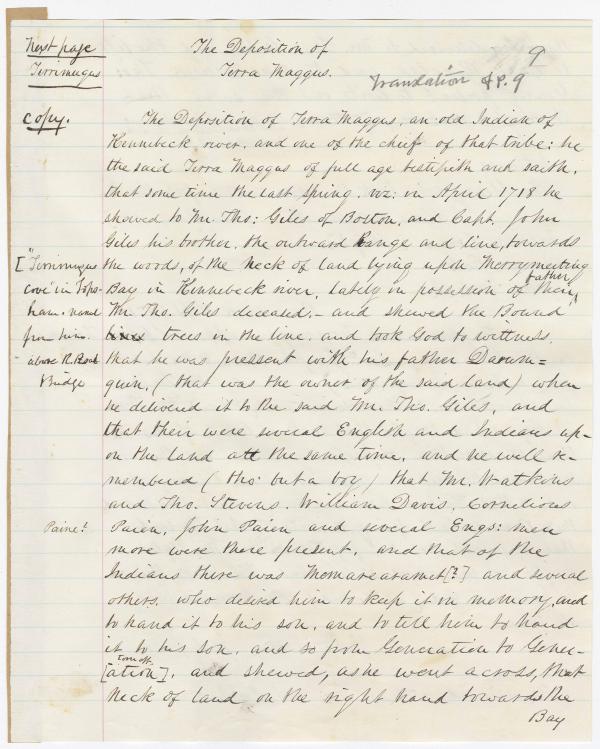 Next page
Terrimugus
The Deposition of
Terra Maggus.
9
Translation &P. 9
Copy.
The Deposition of Terra Maggus, an old Indian of
Kennebeck river, and one of the chief of that tribe: he
the said Terra Maggus of full age testifith and saith,
that some time the last spring. viz: in April 1718 he
shewed to Mr. Tho: Giles of Boston, and Capt. John
Giles his brother, the outward Range and line, towards
["Terrimugus
cove" in Tops-
ham - named
from him.
above R. Road
Bridge
the woods, of the Neck of land lying upon Merrymeeting
Bay in Kennebeck river, lately in possession of their father
Mr. Tho. Giles deceased, - and shewed the Bound
trees in the line. and took God to wittness,
that he was pressent with his father Darum=
quin, (that was the owner of the said land) when
he delivered it to the said Mr. Tho. Giles, and
that their were several English and Indians up-
on the land att the same time, and he will re-
membered (tho: but a boy) that Mr. Watkins
and Tho. Stevens. William Davis, Cornelious
Paine?
Paien, John Paien and several Engs: men
more were there present, and that of the
Indians there was Memarearamet [?] and several
others. who desired him to keep it in memory, and
to hand it to his son, and to tell him to hand
it to his son, and so from Generation to Gener-
torn off
[ation], and shewed, as he went across, that
Neck of land on the right hand towards the
Bay